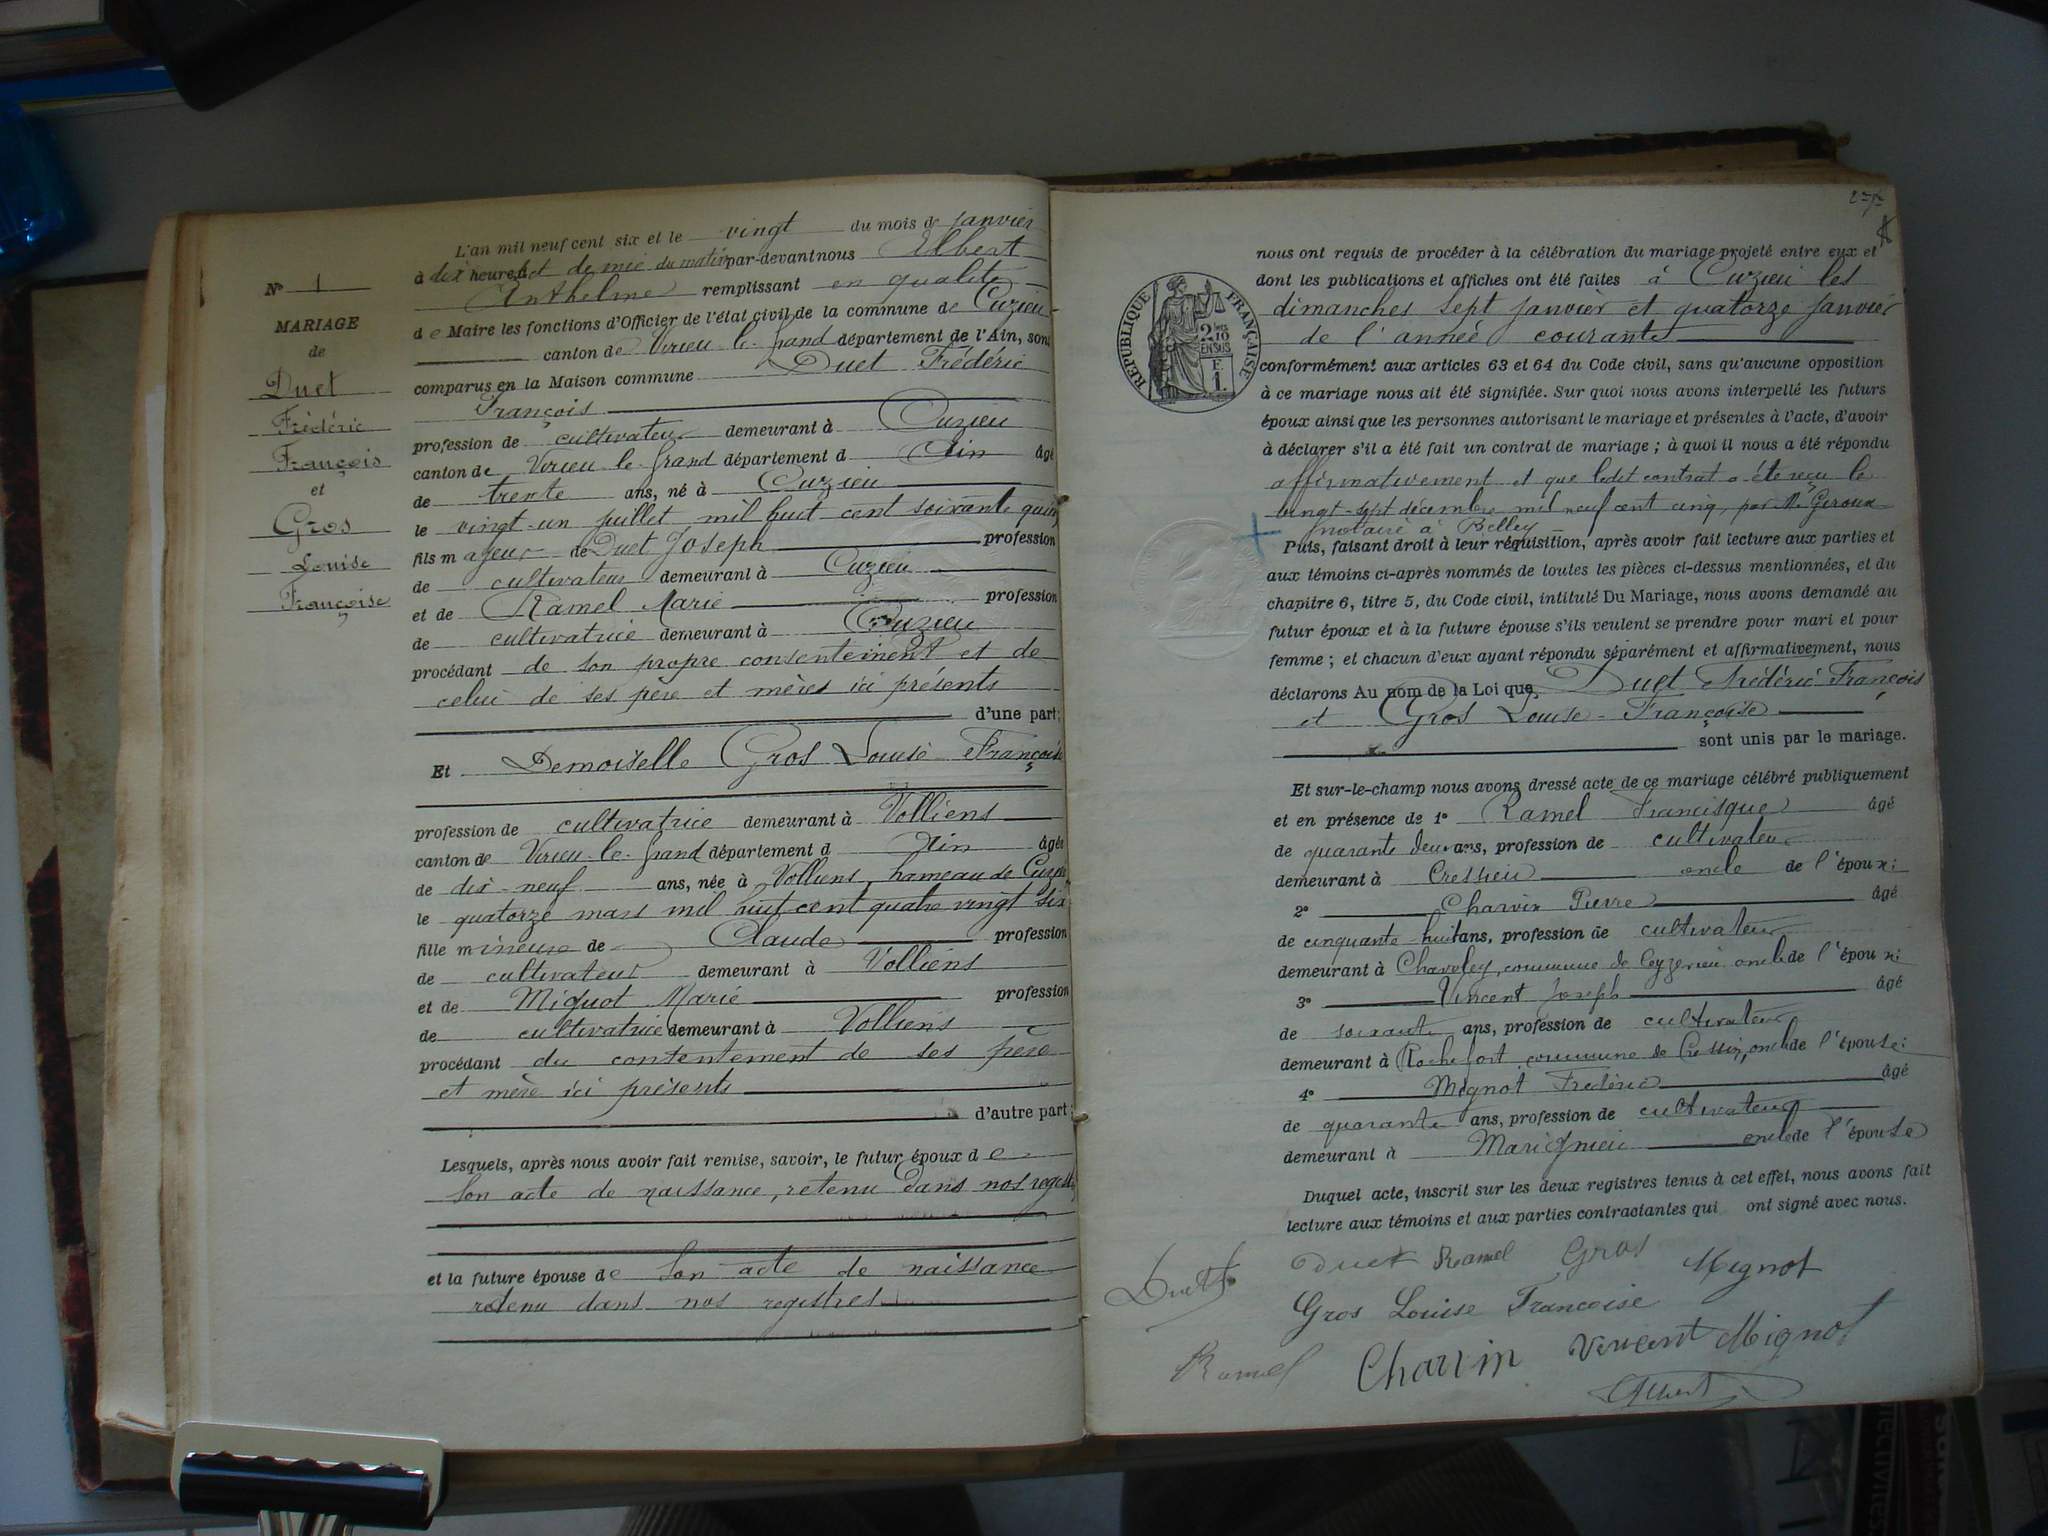 L'an mil neuf cent six et le vingt du mois de janvier
à dix heures et demie du matin par-devant nous Albert
Anthelme remplissant en qualité
de Maire les fonctions d'Officier de l'état civil de la commune de Cuzieu
canton de Virieu le Grand département de l'Ain, sont
comparus en la Maison commune Duet Frédéric
François
profession de cultivateur demeurant à Cuzieu
canton de Virieu le Grand département d Ain âgé
de trente ans, né à Cuzieu
le vingt-un juillet mil huit cent soixante quinze
fils majeur de Duet Joseph profession
de cultivateur demeurant à Cuzieu
et de Ramel Marie profession
de cultivatrice demeurant à Cuzieu
procédant de son propre consentement et de
celui de ses père et mères ici présents
d'une part;
Et Demoiselle Gros Louise Françoise
profession de cultivatrice demeurant à Volliens
canton de Virieu-le-Grand département d Ain âgée
de dix-neuf ans, née à Volliens, hameau de Cuzieu
le quatorze mars mil huit cent quatre vingt six
fille mineure de Claude profession
de cultivateur demeurant à Volliens
et de Mignot Marie profession
de cultivatrice demeurant à Volliens
procédant du consentement de ses père
et mère ici présents
d'autre part;
Lesquels, après nous avoir fait remise, savoir, le futur époux de
son acte de naissance, retenu dans nos registres
et la future épouse de son acte de naissance
retenu dans nos registres
N° 1
MARIAGE
de
Duet
Frédéric
François
et
Gros
Louise
Françoise
nous ont requis de procéder à la célébration du mariage projeté entre eux et
dont les publications et affiches ont été faites à Cuzieu les
dimanches sept janvier et quatorze janvier
de l'année courante
conformément aux articles 63 et 64 du Code civil, sans qu'aucune opposition
à ce mariage nous ait été signifiée. Sur quoi nous avons interpellé les futurs
époux ainsi que les personnes autorisant le mariage et présentes à l'acte, d'avoir
à déclarer s'il a été fait un contrat de mariage; à quoi il nous a été répondu
affirmativement et que ledit contrat a été reçu le
vingt-sept décembre mil neuf cent cinq, par Me Giroux
notaire à Belley
Puis, faisant droit à leur réquisition, après avoir fait lecture aux parties et
aux témoins ci-après nommés de toutes les pièces ci-dessus mentionnées, et du
chapitre 6, titre 5, du Code civil, intitulé Du Mariage, nous avons demandé au
futur époux et à la future épouse s'ils veulent se prendre pour mari et pour
femme; et chacun d'eux ayant répondu séparément et affirmativement, nous
déclarons Au nom de la Loi que Duet Frédéric François
et Gros Louise-Françoise
sont unis par le mariage.
Et sur-le-champ nous avons dressé acte de ce mariage célébré publiquement
et en présence de 1° Ramel Francisque âgé
de quarante deux ans, profession de cultivateur
demeurant à Cressieu oncle de l'époux:
2° Charvin Pierre âgé
de cinquante-huit ans, profession de cultivateur
demeurant à Chavoley, commune de Ceyzerieu oncle de l'époux:
3° Vincent Joseph âgé
de soixante ans, profession de cultivateur
demeurant à Rochefort, commune de Cressin, oncle de l'épouse:
4° Mignot Frédéric âgé
de quarante ans, profession de cultivateur
demeurant à Marignieu oncle de l'épouse
Duquel acte, inscrit sur les deux registres tenus à cet effet, nous avons fait
lecture aux témoins et aux parties contractantes qui ont signé avec nous.
Duet Duet Ramel Gros Mignot
Gros Louise Francoise
Ramel Charvin Vincent Mignot
Albert
RÉPUBLIQUE FRANÇAISE
2/10
EN SUS
F.
1.